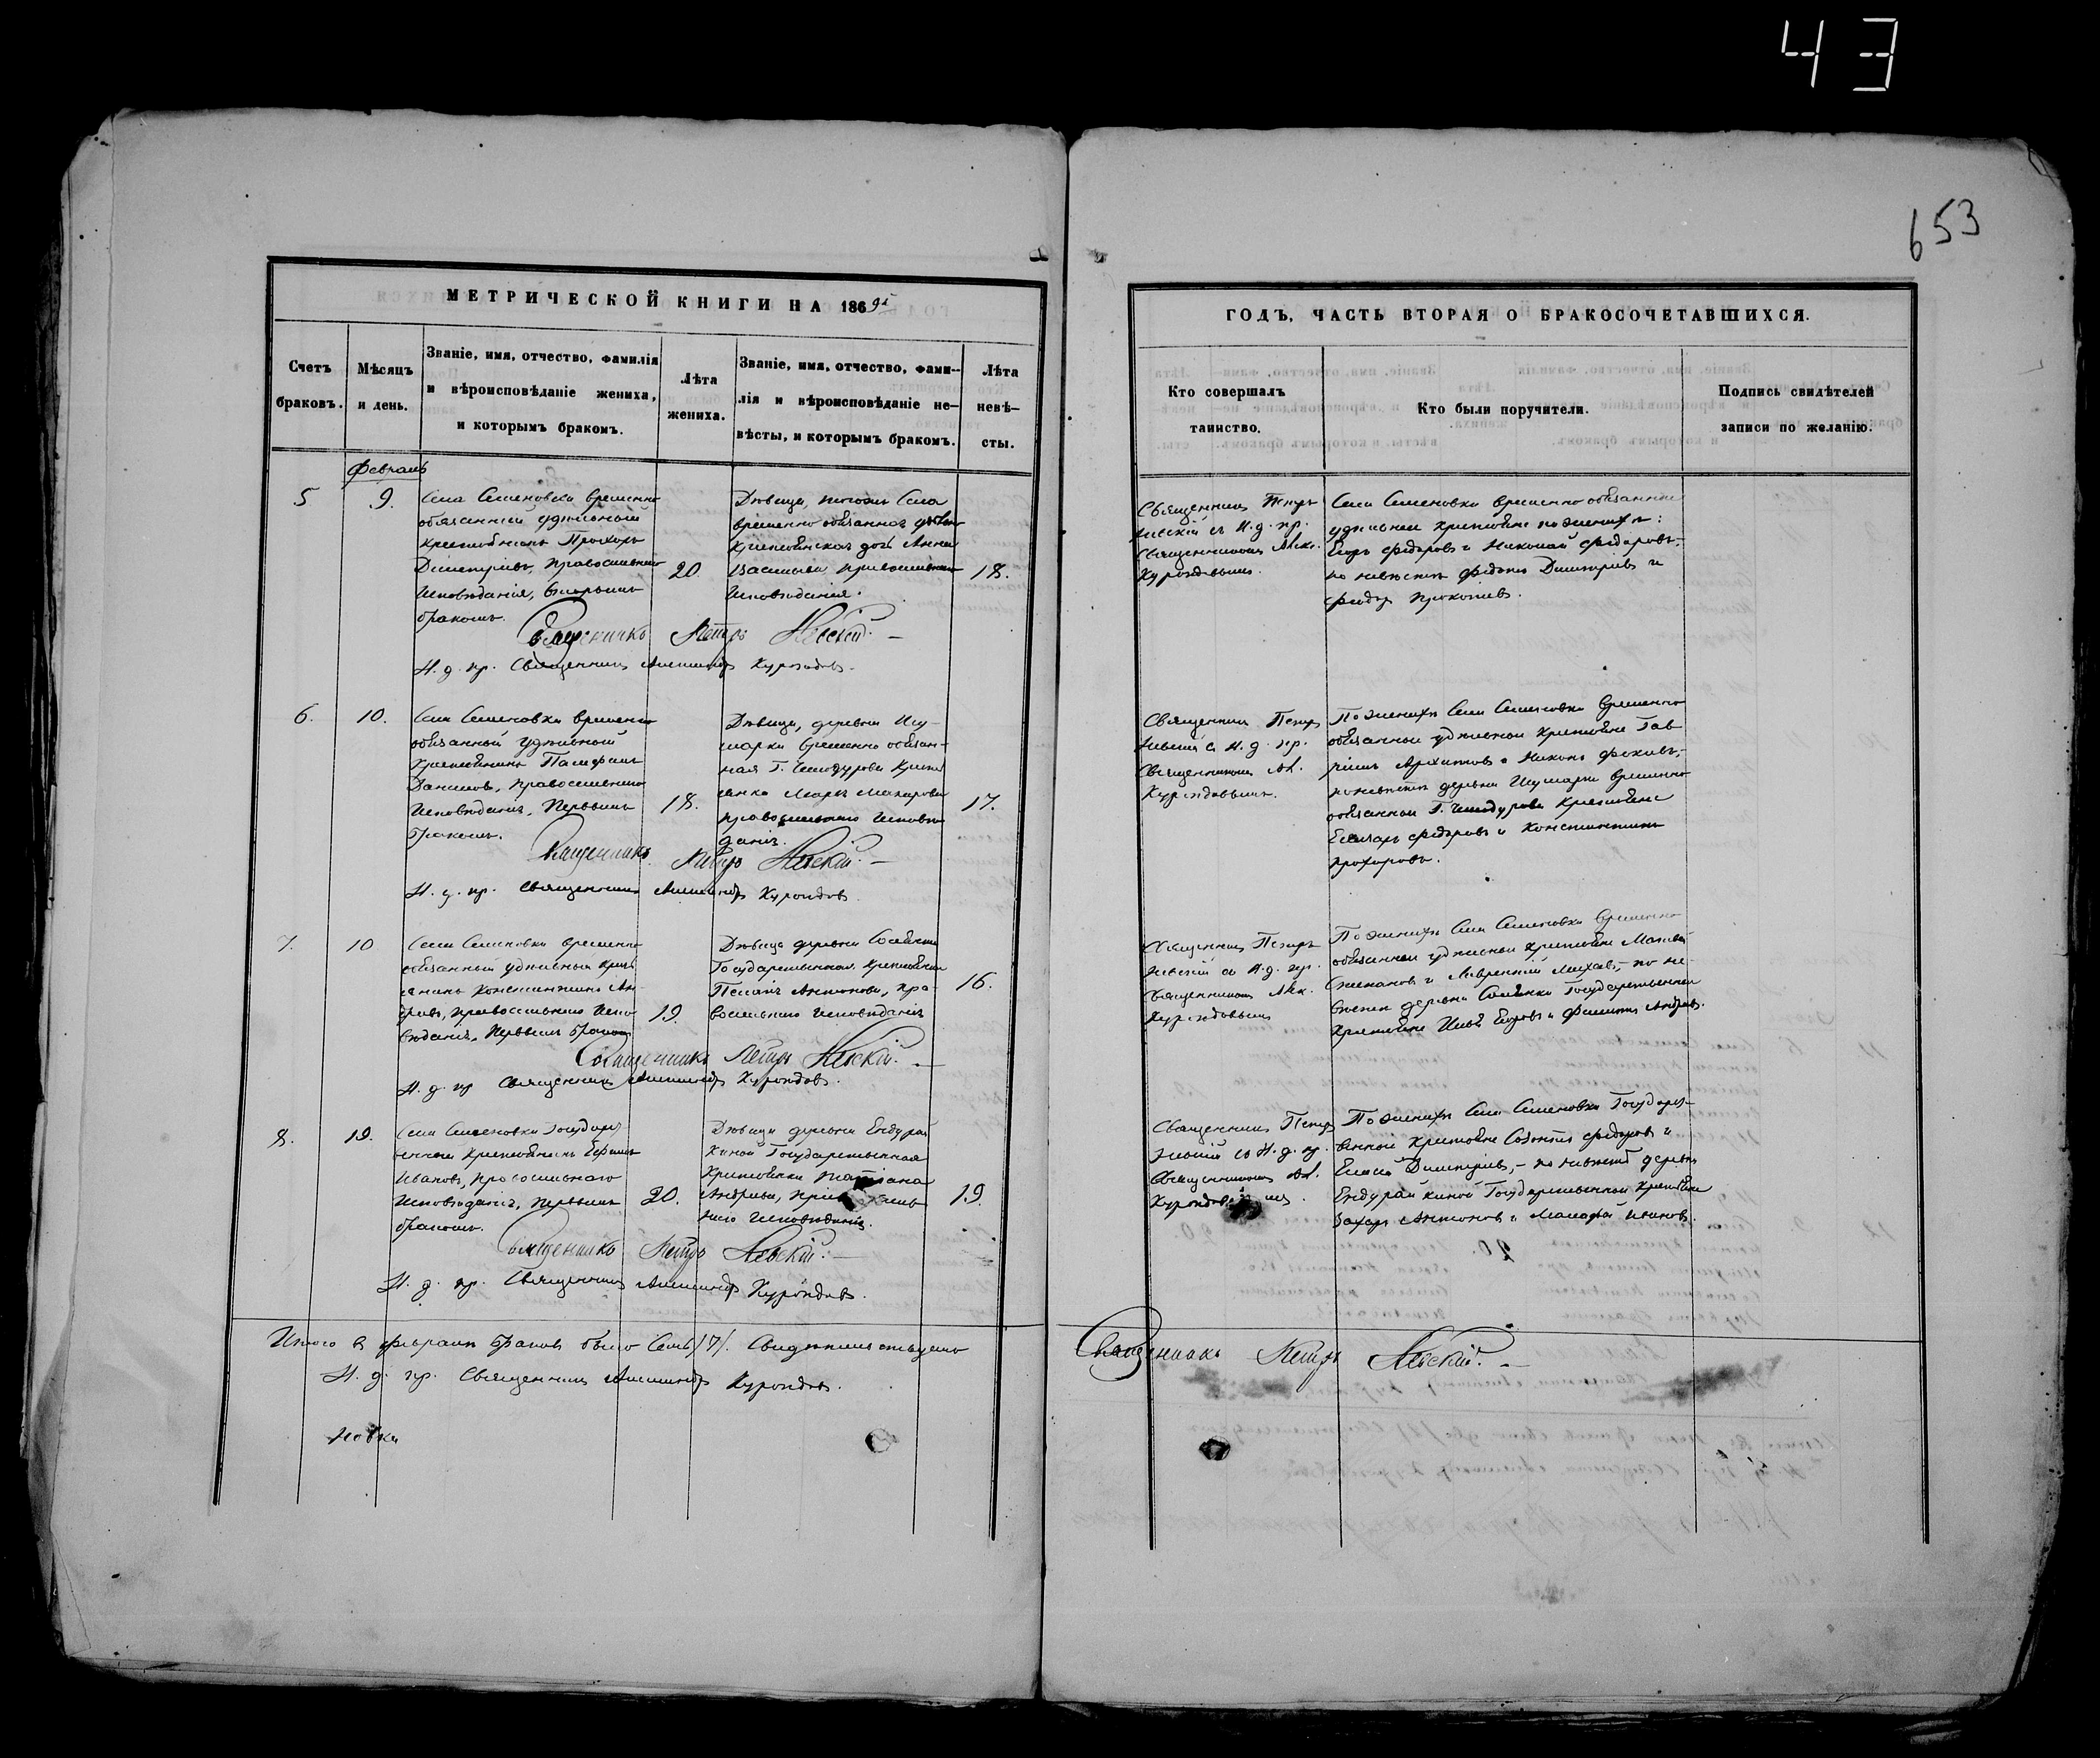 43
653
МЕТРИЧЕСКОЙ КНИГИ НА 1869й
Счетъ
браковъ.
Мѣсяцъ
и день.
Званіе, имя, отчество, фамилія
и вѣроисповѣданіе жениха,
и которымъ бракомъ.
Лѣта
жениха.
Званіе, имя, отчество, фами-
лія и вѣроисповѣданіе не-
вѣсты, и которымъ бракомъ.
Лѣта
невѣ-
сты.
Февраль
5
9.
Села Семеновки временно
обязанный удѣльный
крестьянинъ Прохоръ
Димитріевъ, православнаго
исповѣданія, вторымъ
бракомъ.
20
Дѣвица, тогожъ села
временно обязаннаго
крестьянская дочь Анна
Васильева православнаго
исповѣданія.
18.
Священникъ Петръ Невскій. —
И. д. пр. Священникъ Александръ Курондовъ.
6.
10.
Села Семеновки временно
обязанный удѣльный
крестьянинъ Памфилъ
Даниловъ, православнаго
исповѣданія, первымъ
бракомъ.
18.
Дѣвица, деревни
временно обязан-
ная Г. Чемодурова кресть
янка Макарова
православнаго исповѣ
данія.
17.
Священникъ Петръ Невскій. —
И. д. пр. Священникъ Александръ Курондовъ.
7.
10
Села Семеновки временно
обязанный удѣльный кресть
янинъ Константинъ Ан-
дреевъ, православнаго испо-
вѣданія, первымъ бракомъ
19.
Дѣвица деревни
Государственная крестьянка
Пелагія Антонова, пра-
вославнаго исповѣданія
16.
Священникъ Петръ Невскій. —
И. д. пр Священникъ Александръ Курондовъ.
8.
19.
Села Семеновки Государст
венный крестьянинъ Ефимъ
Ивановъ, православнаго
исповѣданія, первымъ
бракомъ.
20.
Дѣвица деревни Ендурай
киной Государственная
крестьянка Татіана
Андреева, православ
наго исповѣданія.
19.
Священникъ Петръ Невскій. —
И. д. пр. Священникъ Александръ Курондовъ.
Итого въ февралѣ браковъ было семь /7/. Свидѣтельствуемъ
И. д. пр. Священникъ Александръ Курондовъ.
новки
ГОДЪ, ЧАСТЬ ВТОРАЯ О БРАКОСОЧЕТАВШИХСЯ.
Кто совершалъ
таинство.
Кто были поручители.
Подпись свидѣтелей
записи по желанію.
Священникъ Петръ
Невскій съ И. д. пр.
Священникомъ Алек.
Курондовымъ.
Села Семеновки временно обязанные
удѣльные крестьяне по женихѣ:
Егоръ Федоровъ и Николай Федоровъ,-
по невѣстѣ Димитріевъ и
Федоръ Прокопіевъ.
Священникъ Петръ
Невскій съ И. д. пр.
Священникомъ Ал.
Курондовымъ.
По женихѣ Села Семеновки временно
обязанные удѣльные крестьяне Гав-
ріилъ Архиповъ и Никонъ Фокинъ,-
по невѣстѣ деревни временно
обязанные Г. Чемодурова крестьяне
Федоровъ и Константинъ
Прохоровъ.
Священникъ Петръ
Невскій съ И. д. пр.
Священникомъ Алек.
Курондовымъ
По женихѣ Села Семеновки временно
обязанные удѣльные крестьяне Матвей
Степановъ и Лаврентій - по не-
вѣстѣ деревни Государственные
крестьяне Илья Егоровъ и Филиппъ Андреевъ.
Священникъ Петръ
Невскій съ И. д. пр.
Священникомъ Ал.
Курондовымъ.
По женихѣ Села Семеновки Государст-
венные крестьяне Созонтъ Федоровъ и
Елисей Димитріевъ, - по невѣстѣ деревни
Ендурайкиной Государственные крестьяне
Захаръ Антоновъ и Малафей Ивановъ.
Священникъ Петръ Невскій. —